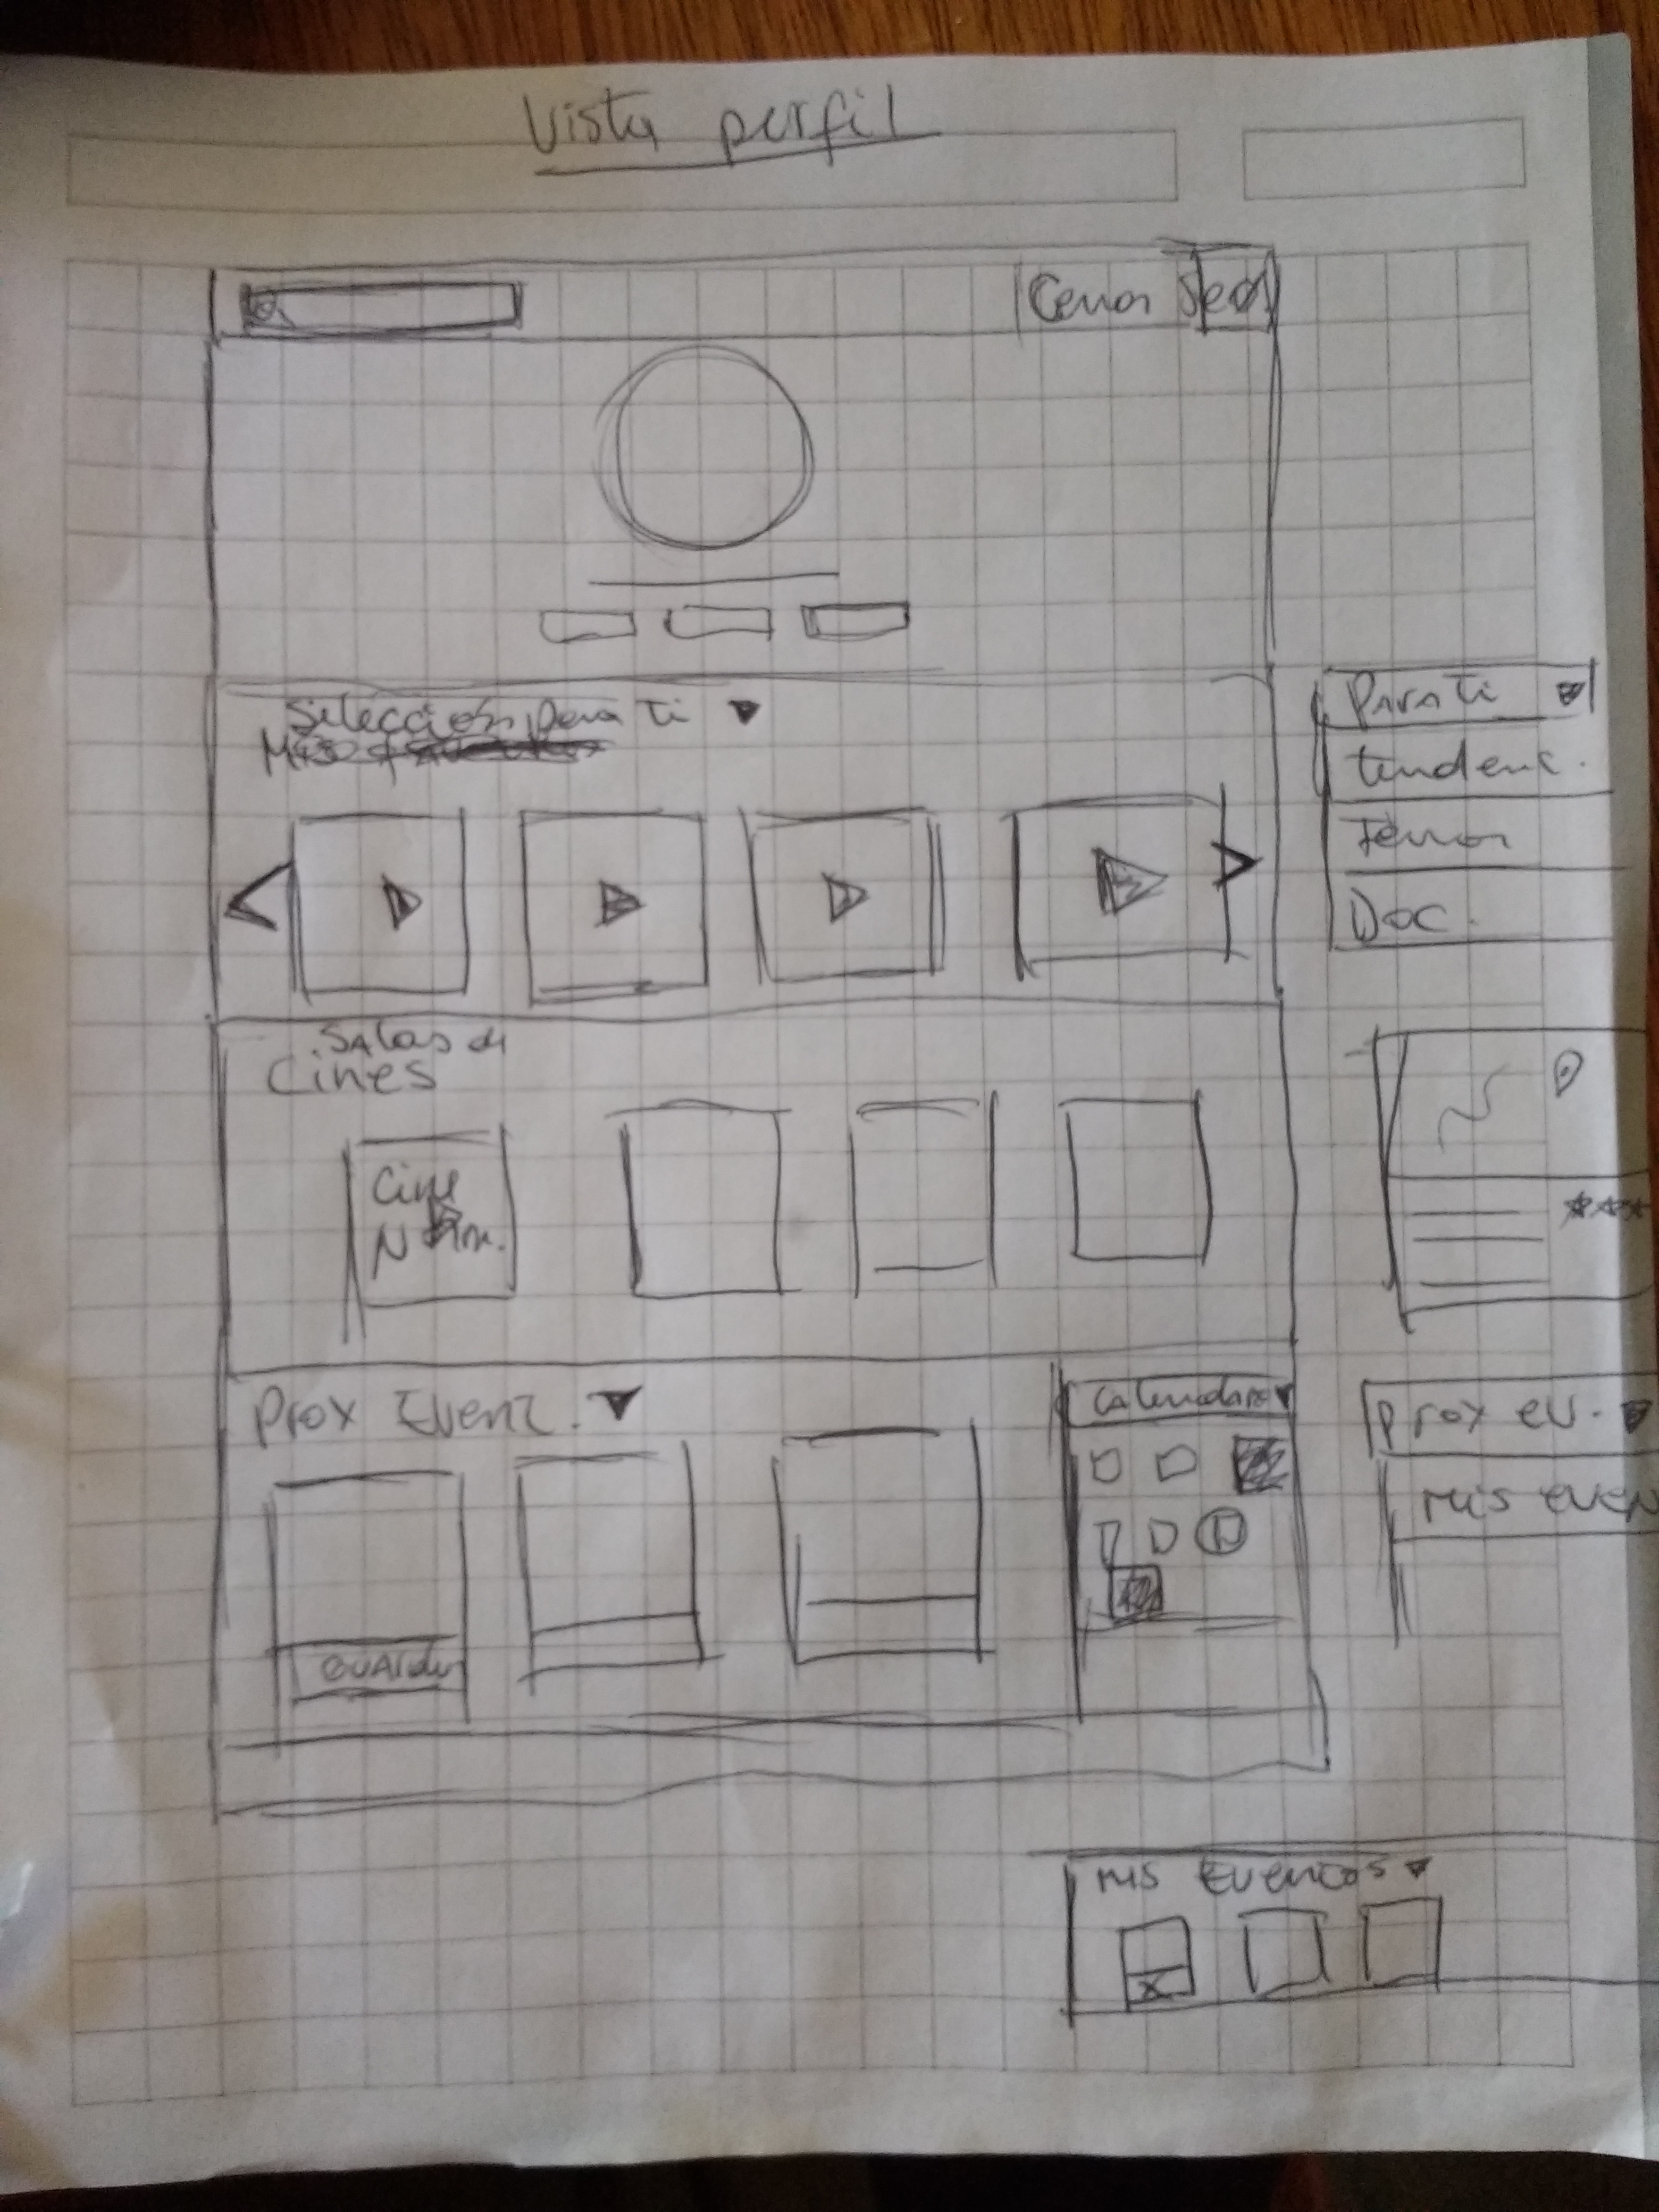 Vista perfil
Cerrar Ses
Selección para Ti
Para Ti
tendenc.
Terror
Doc.
Salas de
Cines
Cine
N
Prox Event.
Calendario
Prox ev.
Mis even
Guardar
Mis Eventos